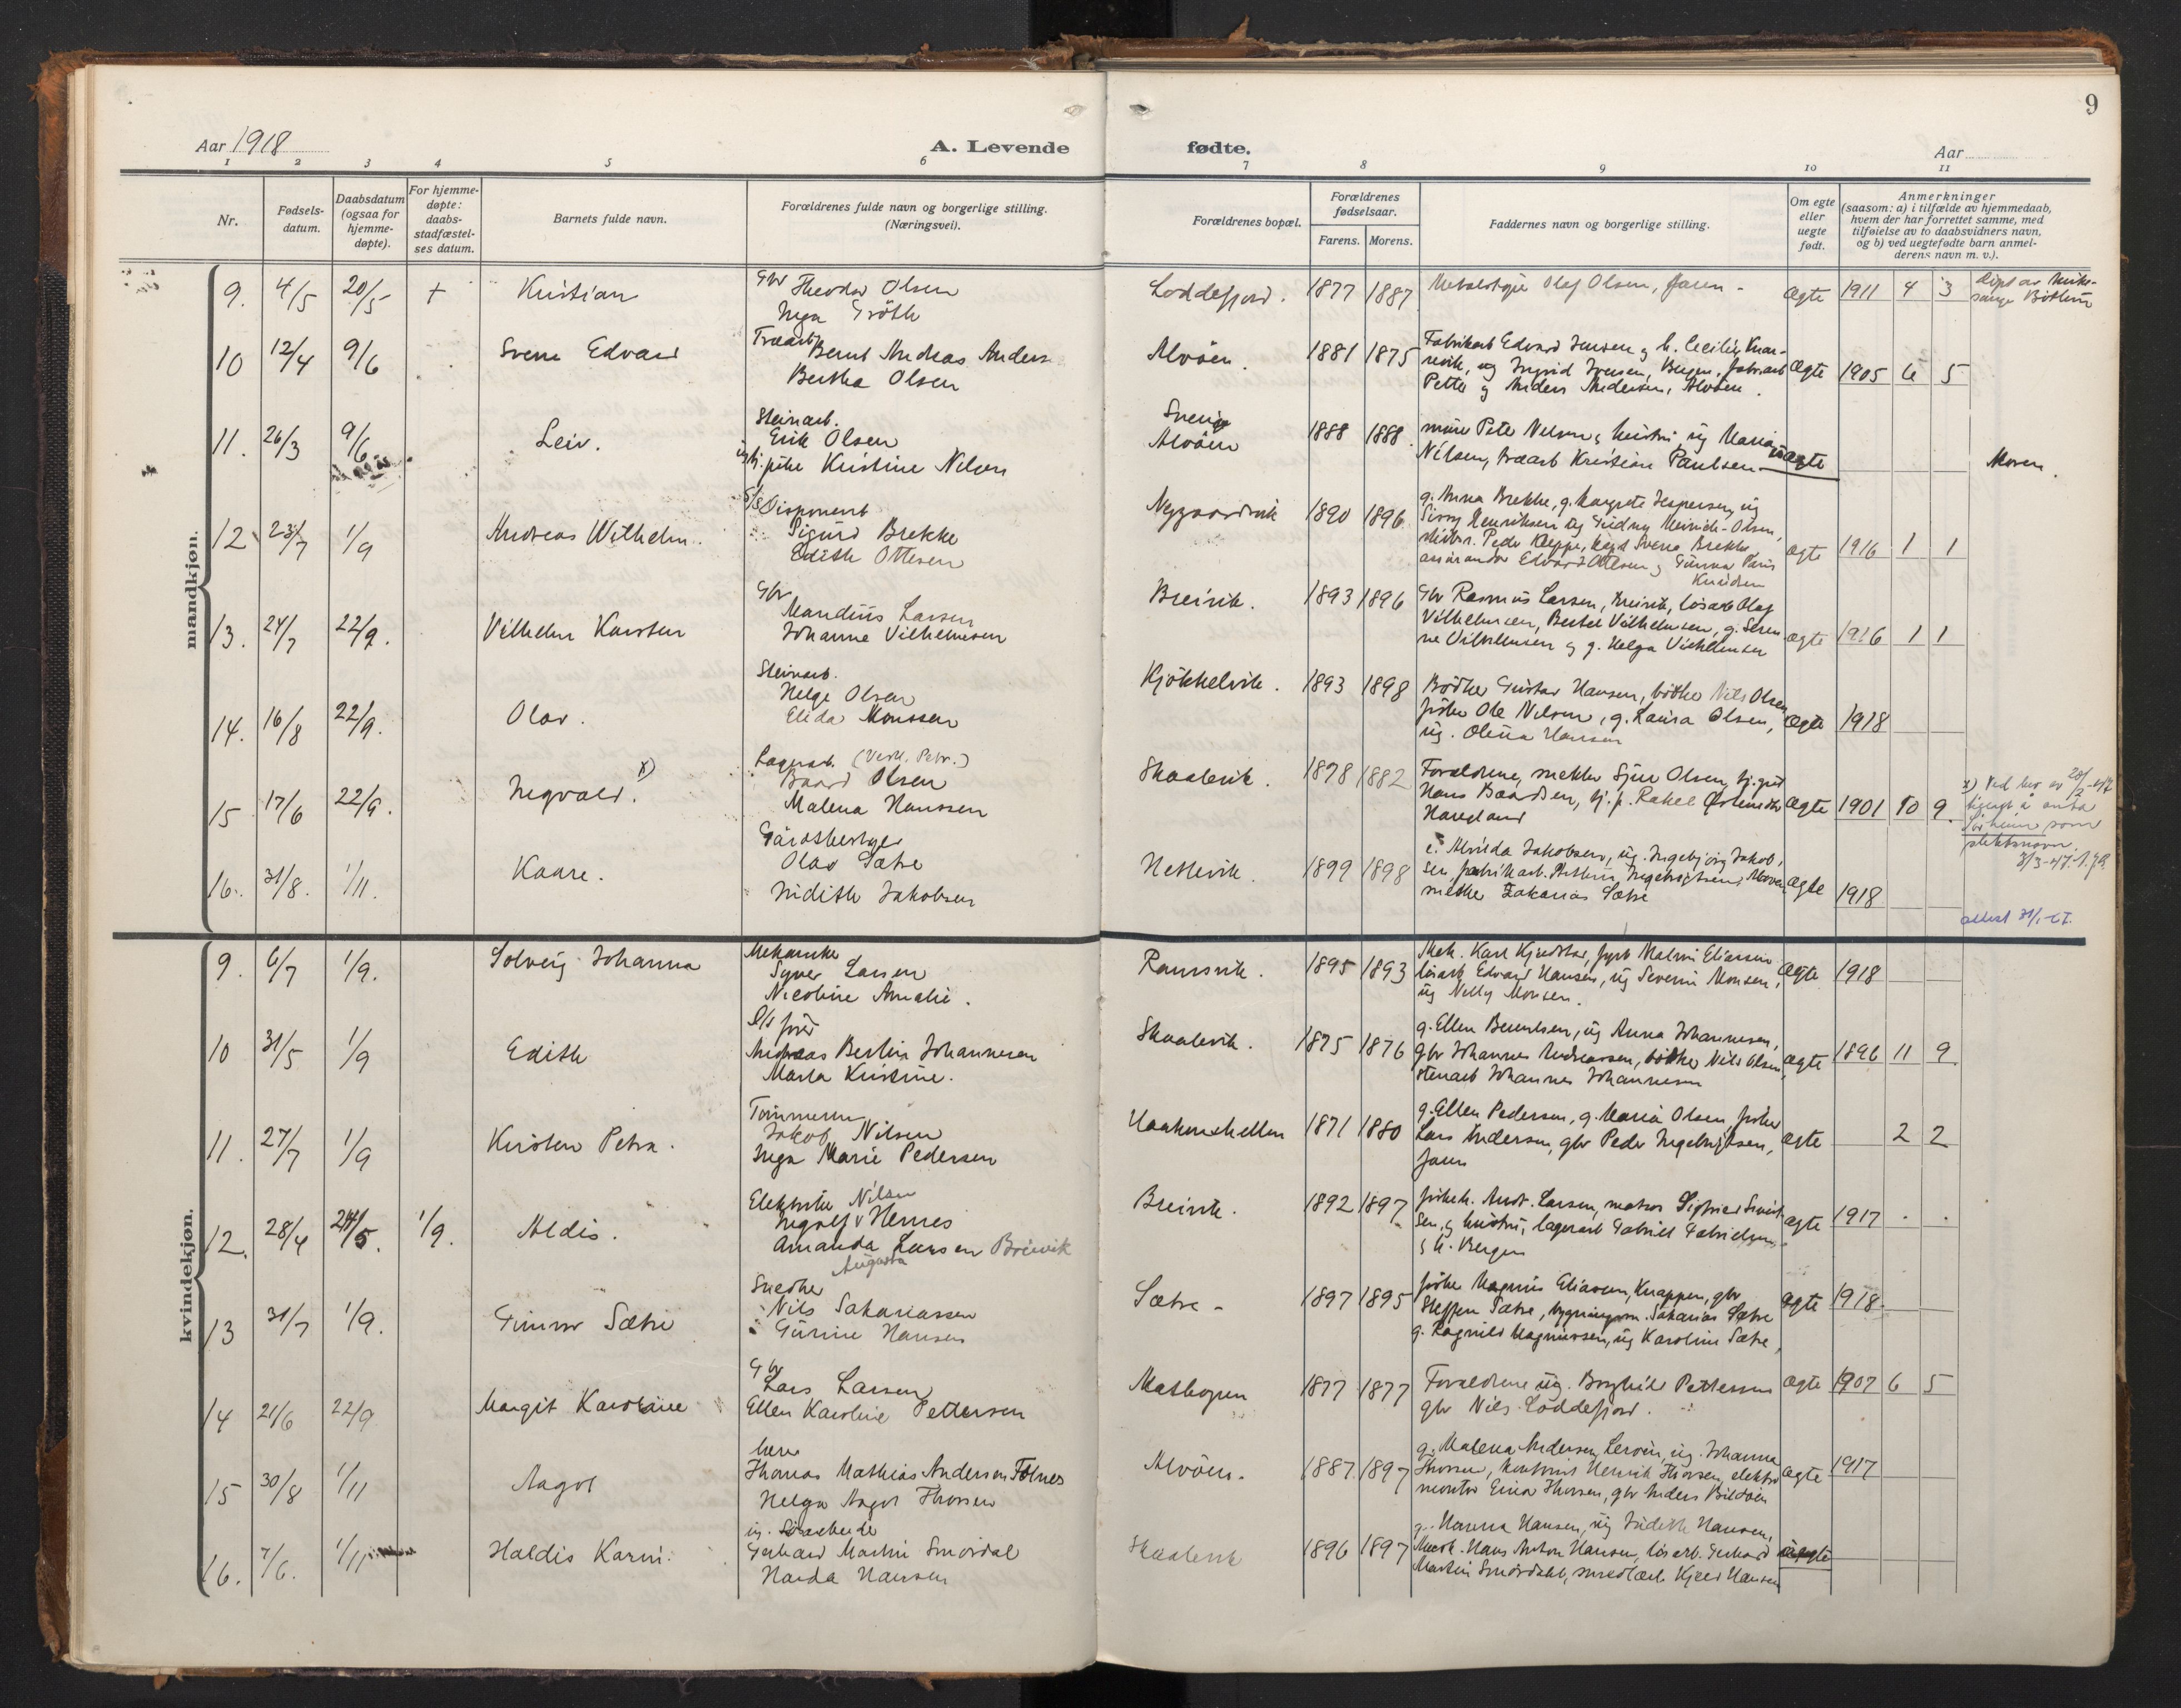 9
Aar 1918
A. Levende
fødte.
Aar
1 2 3 4 5 6 7 8 9 10 11
Nr.
Fødsels-
datum.
Daabsdatum
(ogsaa for
hjemme-
døpte).
For hjemme-
døpte:
daabs-
stadfæstel-
ses datum.
Barnets fulde navn.
Forældrenes fulde navn og borgerlige stilling.
(Næringsvei).
Forældrenes bopæl.
Forældrenes
fødselsaar.
Farens. Morens.
Faddernes navn og borgerlige stilling.
Om egte
eller
uegte
født.
Anmerkninger
(saasom: a) i tilfælde av hjemmedaab,
hvem der har forrettet samme, med
tilføielse av to daabsvidners navn,
og b) ved uegtefødte barn anmel-
derens navn m. v.).
mandkjøn.
9. 4/5 20/5 + Kristian
Gbr Theodor Olsen
Inga Gröth
Loddefjord. 1877 1887
Olaf Olsen, faren -
ægte 1911 4 3
10 12/4 9/6 Sverre Edvard
Træarb
Bernt Andreas Anders
Bertha Olsen
Alvöen. 1881 1875
Fabrikarb Edvard Jensen & h. Cecilie Knar-
revik, ug Ingrid Iversen, Bergen, fabrarb
Petter & Anders Andersen, Alvöen.
ægte 1905 6 5
11. 26/3 9/6 Leiv.
Steinarb.
Erik Olsen
ug tj. pike Kristine Nilsen
Sverige
Alvöen 1888 1888.
murer Peter Nelsen & hustru, ug Maria
Nilsen, træarb Kristian Paulsen
uægte
Moren.
12. 23/7 1/9 Andreas Wilhelm.
Disponent
Sigurd Brekke
Edith Ottesen
Nygaardsvik 1890 1896
g. Anna Brekke, g. Margrete Jespersen, ug
Sissy Henriksen ug Gudny Meinich-Olsen,
skibsr. Peder Kleppe, kapt Sverre Brekke
assurandør Edvard Ottesen & Gunnar Paris
Knudsen
ægte 1916 1 1
13. 24/7 22/9. Vilhelm Karsten
Gbr
Mandius Larsen
Johanne Vilhelmsen
Breivik. 1893 1896
Gbr Rasmus Larsen, Breivik, løsarb Olaf
Vilhelmsen, Bertel Vilhelmsen, g. Seren-
ne Vilhelmsen & g. Helga Vilhelmsen
ægte 1916 1 1
14. 16/8 22/9. Olav.
Steinarb.
Helge Olsen
Elida Monssen
Kjökkelvik. 1893 1898
Bødker Gustav Hansen, bødker Nils Olsen
fisker Ole Nilsen, g. Laura Olsen,
ug. Olena Hansen
ægte 1918
15 17/6 22/9. Ingvald. x)
Lagerarb. (Vestl. Petr.)
Baard Olsen
Malena Hanssen
Skaalevik. 1878 1882
Forældrene, snekker Sjur Olsen, tj.gut
Hans Baardsen, tj. p. Rakel
Haugland
ægte 1901 10 9.
x) Ved bev av 28/2-47
å anta
som
slektsnavn.
3/3-47.
16. 31/8. 1/11. Kaare.
Gårdsbestyrer
Olav Sætre
Judith Jakobsen
Nettevik. 1899 1898
e. Alvilda Jakobsen, ug. Ingebjørg Jakob-
sen, fabrikarb. Ingebrigtsen, Alvøen
snekker Zakarias Sætre
ægte 1918
attest 31/1-67.
kvindekjøn.
9. 6/7 1/9. Solveig Johanna
Mekaniker
Syver Larsen
Nicoline Amalie.
Ramsvik. 1895 1893
Mek. Karl Kjedstad, Malvin Eliassen
løsarb Edvard Hansen, ug Severine Monsen,
ug Nelly Monsen.
ægte 1918
10 31/5 1/9 Edith
D/s fører
Andreas Bertin Johannesen
Marta Kristine.
Skaalevik. 1875 1876
g. Ellen Berntsen, ug Anna Johannesen,
gbr Johannes Andreassen, bødker Nils Olsen,
stenarb Johannes Johannesen
ægte 1896 11 9
11. 27/7 1/9 Kirsten Petra.
Tømmerm
Jakob Nilsen
Inga Marie Pedersen
Haakonshellen 1871 1880
g. Ellen Pedersen, g. Maria Olsen, fisker
Lars Andersen, gbr Peder Ingebrigtsen,
faren
ægte 2 2
12. 28/4 24/5. 1/9. Aldis.
Elektriker Nilsen
Ingolf v Hernes
Amanda Larsen Breivik
Augusta
Breivik. 1892 1897
fiskeh. Andr. Larsen, matros Sigfried Sivert-
sen & hustru, lagerarb Gabriel Gabrielsen
& h. Bergen
ægte 1917
13 31/7 1/9. Gunvor Sætre
Snedker
Nils Sakariassen
Gurine Hansen
Sætre - 1897 1895
fisker Magnus Eliassen, Knappen, gbr
Steffen Sætre, bygningsm. Sakarias Sætre
g. Ragnild Magnussen, ug Karoline Sætre,
ægte 1918.
14 21/6 22/9 Margit Karoline
Gbr
Lars Larsen
Ellen Karoline Pettersen
Mathopen 1877 1877
Forældrene ug. Borghild Pettersen
gbr Nils Loddefjord.
ægte 1907 6 5
15 30/8 1/11 Aagot
lærer
Thomas Mathias Andersen Folnes
Helga Aagot Thorsen
Alvöen. 1887 1897
g. Malena Andersen, Lerøen, ug. Johanna
Thorsen, kontorist Henrik Thorsen, elektro
montør Einar Thorsen, gbr Anders Bildøen
ægte 1917
16. 7/6. 1/11 Haldis Karin.
ug. Løsarbeider
Gerhard Martin Smördal
Harda Hansen
Skaalevik 1896 1897
g. Hanna Hansen, ug Judith Hansen,
Hans Anton Hansen, løsarb. Gerhard
Martin Smördahl, smedlærl. Kjeld Hansen
uægte